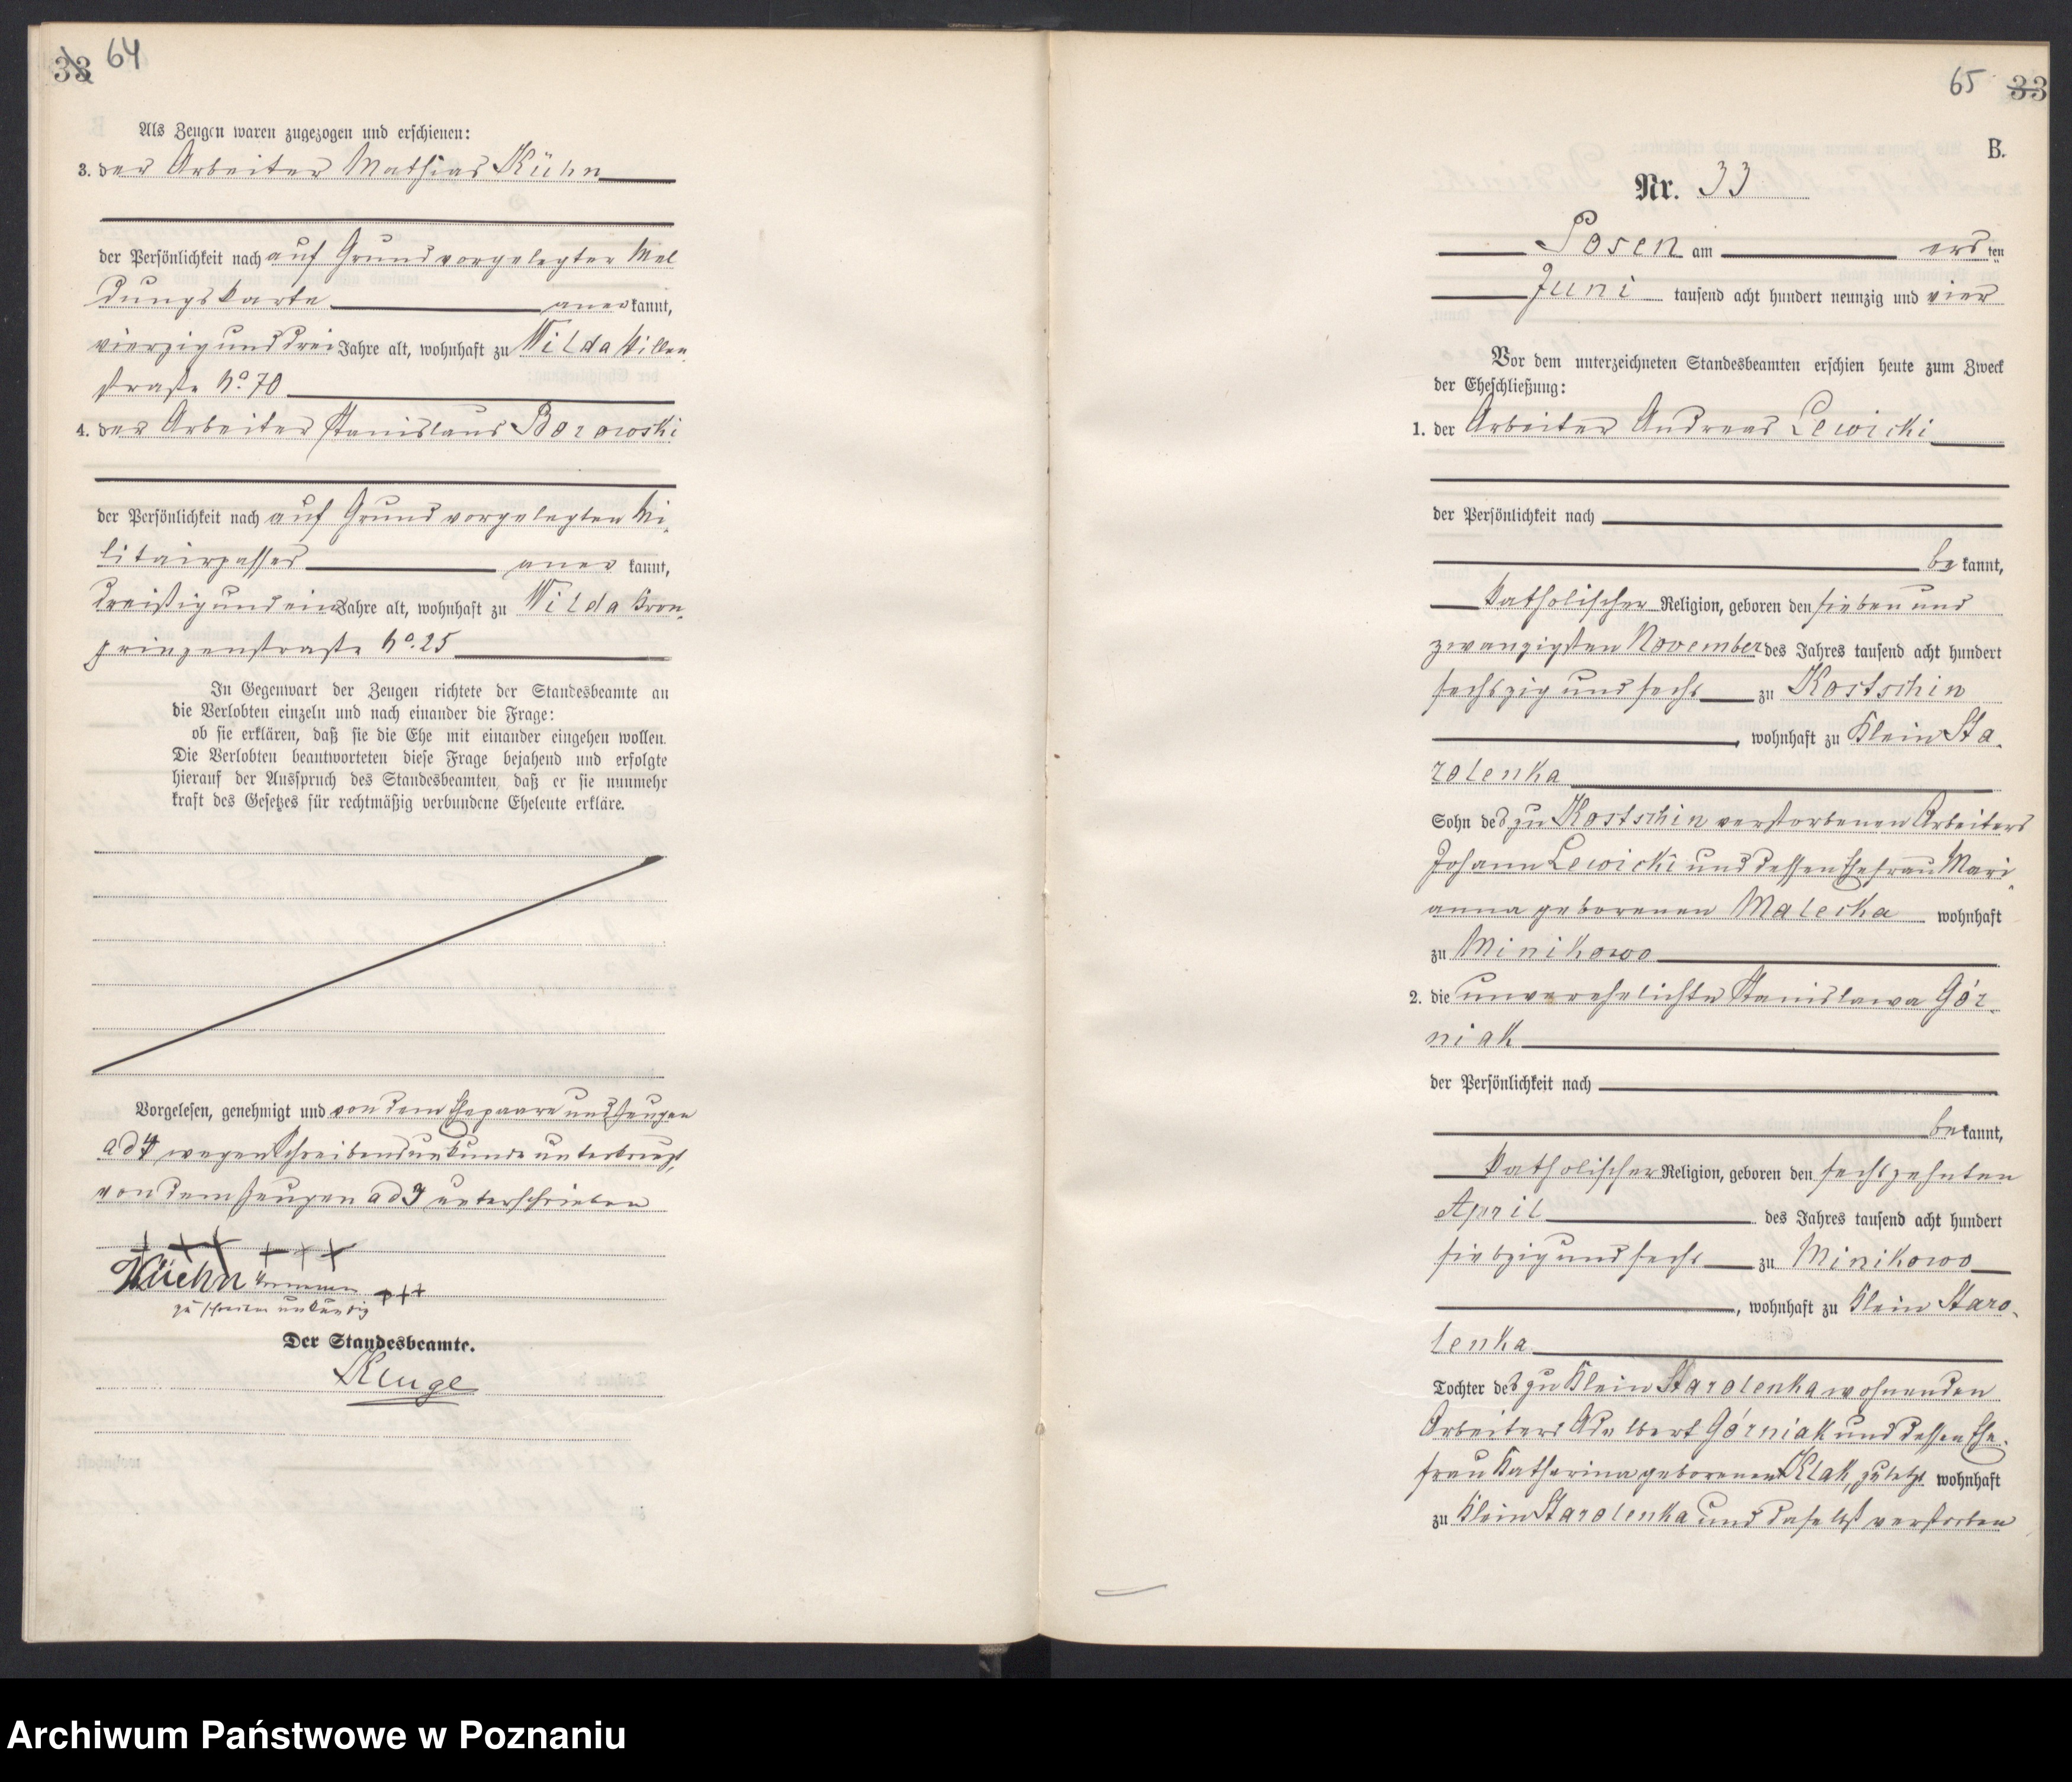 33 64
Als Zeugen waren zugezogen und erschienen:
3. der Arbeiter Mathias Kühn
der Persönlichkeit nach auf Grund vorgelegter Mel
dungskarte anerkannt,
vierzig und drei Jahre alt, wohnhaft zu Wilda Villen
straße No. 70
4. der Arbeiter Stanislaus Borowski
der Persönlichkeit nach auf Grund vorgelegten Mi
litairpasses aner kannt,
dreißig und ein Jahre alt, wohnhaft zu Wilda Kron
prinzenstraße No. 25
In Gegenwart der Zeugen richtete der Standesbeamte an
die Verlobten einzeln und nach einander die Frage:
ob sie erklären, daß sie die Ehe mit einander eingehen wollen.
Die Verlobten beantworteten diese Frage bejahend und erfolgte
hierauf der Ausspruch des Standesbeamten, daß er sie nunmehr
kraft des Gesetzes für rechtmäßig verbundene Eheleute erkläre.
Vorgelesen, genehmigt und von dem Ehepaare und Zeugen
ad 4 wegen Schreibensunkunde unterkreuzt,
von dem Zeugen ad 3 unterschrieben
+ + + + + +
Kühn
+++
Der Standesbeamte.
Kluge
65 33
B.
Nr. 33
Posen am ersten
Juni tausend acht hundert neunzig und vier
Vor dem unterzeichneten Standesbeamten erschien heute zum Zweck
der Eheschließung:
1. der Arbeiter Andreas Lewicki
der Persönlichkeit nach
be kannt,
katholischer Religion, geboren den sieben und
zwanzigsten November des Jahres tausend acht hundert
sechszig und sechs zu Kostschin
, wohnhaft zu Klein Sta
rolenka
Sohn des zu Kostschin verstorbenen Arbeiters
Johann Lewicki und dessen Ehefrau Mari
anna geborenen Malecka wohnhaft
zu Minikowo
2. die unverehelichte Stanislawa Gór
niak
der Persönlichkeit nach
bekannt,
katholischer Religion, geboren den sechszehnten
April des Jahres tausend acht hundert
siebzig und sechs zu Minikowo
, wohnhaft zu Klein Staro
lenka
Tochter des zu Klein Starolenka wohnenden
Arbeiters Adalbert Górniak und dessen Ehe
frau Katharina geborenen Klak, zuletzt wohnhaft
zu Klein Starolenka und daselbst verstorben
Archiwum Państwowe w Poznaniu